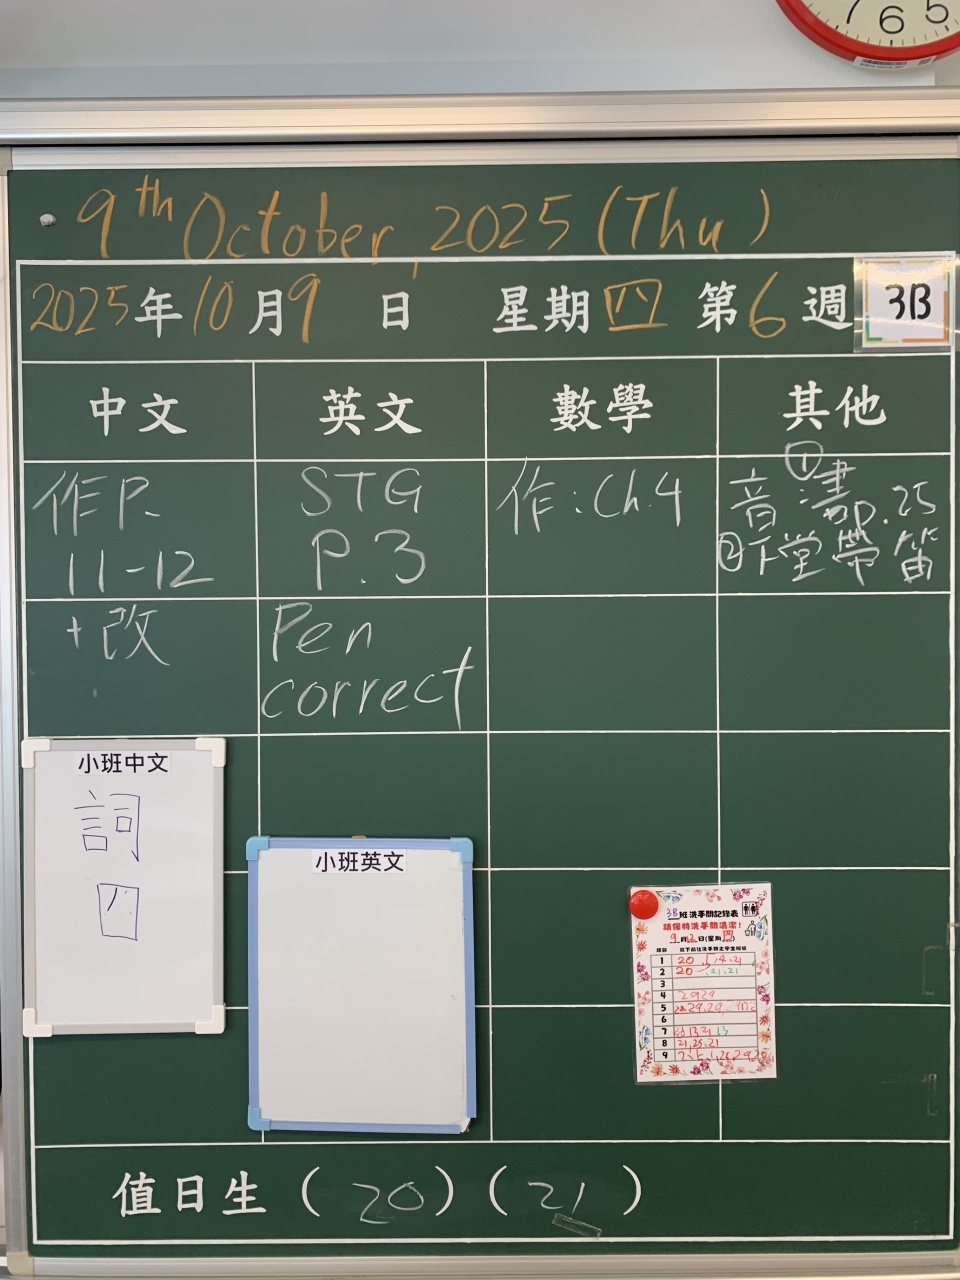 7 6 5
9th October, 2025 (Thu)
2025年10月9日 星期四 第6週 3B
中文 英文 數學 其他
作P.
11-12
+改
STG
P.3
Pen
correct
作:Ch.4
音 ①書p.25
②下堂帶笛
小班中文
詞
四
小班英文
3B班洗手間記錄表
請保持洗手間清潔!
9月2日(星期四)
1 20
2 20 21,21
3
4 2929
5 29,29
6
7 13 21 13
8 21,26,21
9
值日生(20)(21)